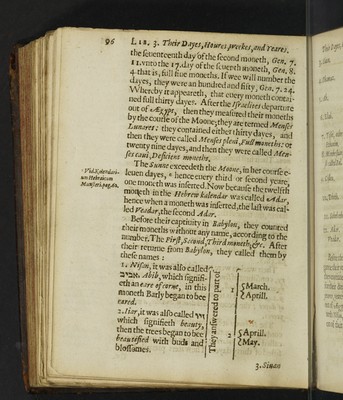 96 LIB. 3. Their Dayes, Houres, weekes, and Yeares.
the seuenteenth day of the second moneth, Gen. 7.
11. vnto the 17. day of the seuenth moneth, Gen. 8.
4 that is, full fiue moneths. If wee will number the
dayes, they were an hundred and fifty, Gen. 7. 24.
Whereby it appeareth, that euery moneth contai-
ned full thirty dayes. After the Israelites departure
out of Ægypt, then they measured their moneths
by the course of the Moone; they are termed Menses
Lunares: they contained either thirty dayes, and
then they were called Menses pleni, Full moneths: or
twenty nine dayes, and then they were called Men-
ses caui, Deficient moneths.
The Sunne exceedeth the Moone, in her course e-
leuen dayes, hence euery third or second yeare,
one moneth was inserted. Now because the twelfth
moneth in the Hebrew kalendar was called Adar,
hence when a moneth was inserted, the last was cal-
led Veadar, the second Adar.
Vid. Kalendari-
um Hebraicum
Munsteri, pag. 62.
Before their captiuity in Babylon, they counted
their moneths without any name, according to the
number. The First, Second, Third moneth, &c. After
their returne from Babylon, they called them by
these names:
1. Nisan, it was also called
אביב Abib, which signifi-
eth an eare of corne, in this
moneth Barly began to bee
eared.
2. Iiar, it was also called זיו
which signifieth beauty,
then the trees began to bee
beautified with buds and
blossames.
They answered to part of
1 March.
Aprill.
2 Aprill.
May.
3. Siuan